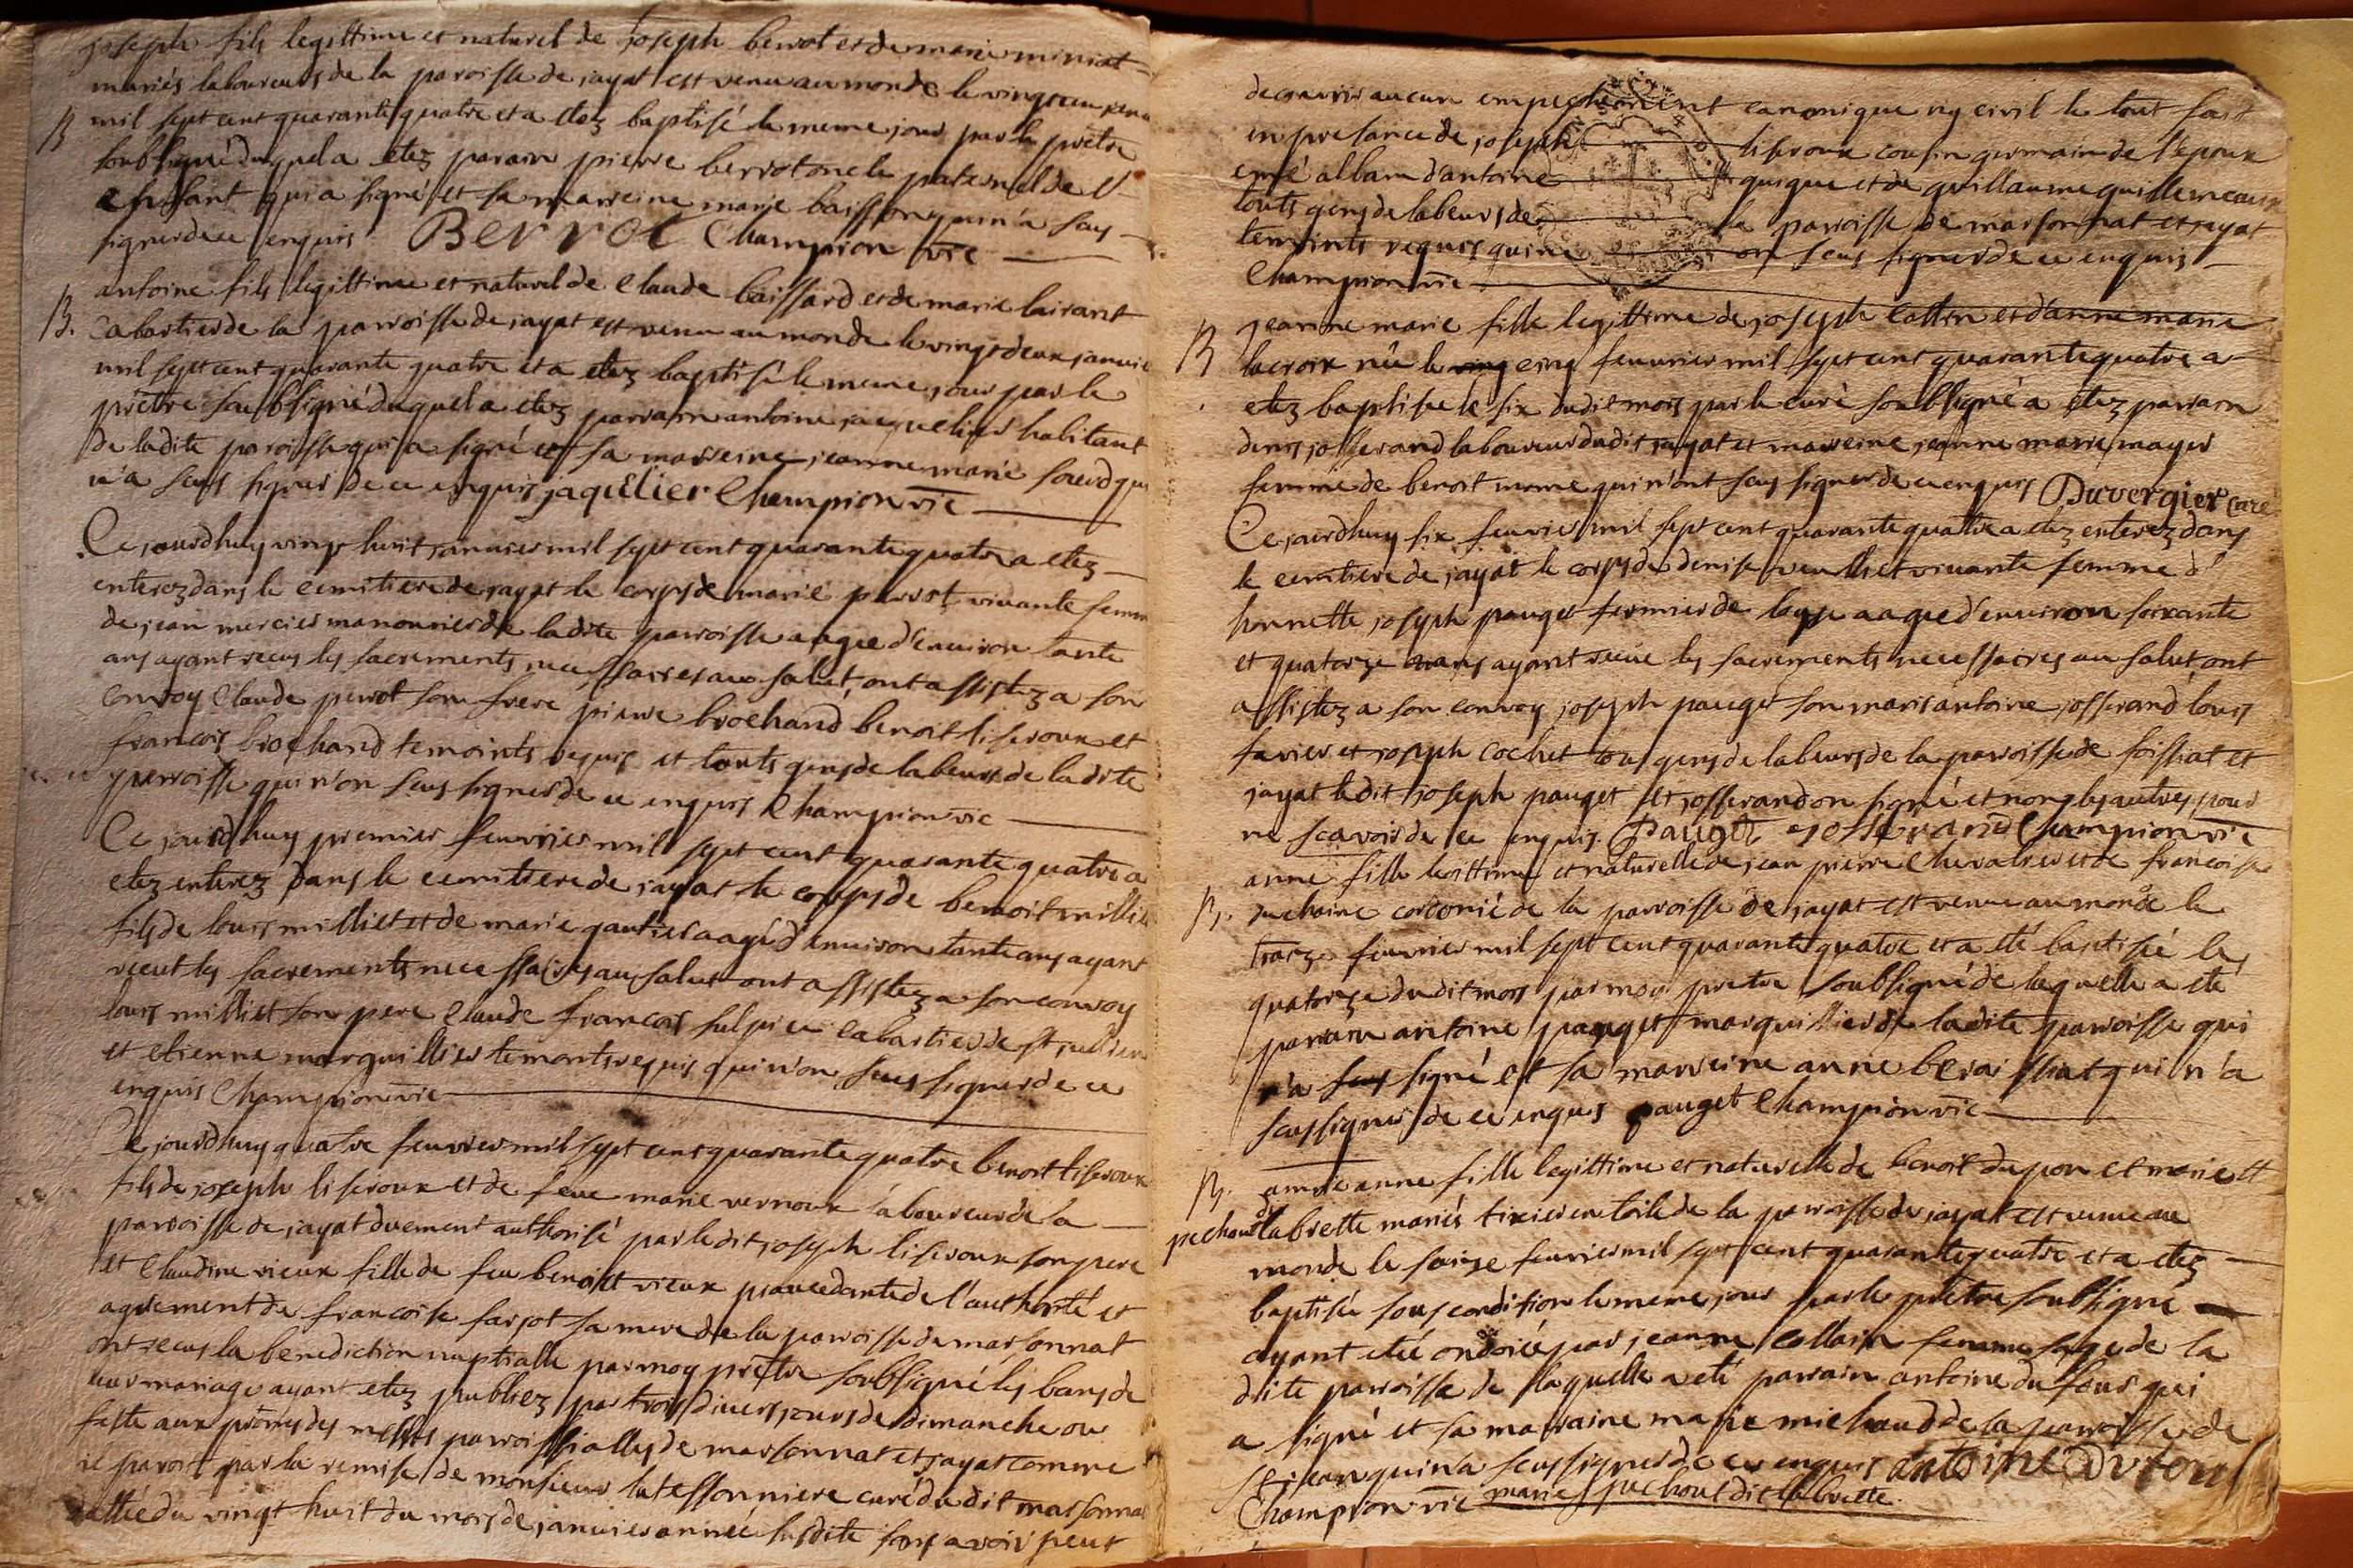 joseph fils legittime et naturel de joseph berrot et de marie miniat
mariés laboureurs de la paroisse de jayat est venu au monde le vingt un janv
B mil sept cent quarante quatre et a etez baptisé le meme jour par le prêtre
soubsigné duquel a etez parain pierre berrot oncle paternel de l'
enfant qui a signé et sa marreine marie baisson qui n'a sçus
signer de ce enquis Berrot Champion vic
antoine fils legittime et naturel de Claude baissard et de marie lairant
B. Cabartier de la parroisse de jayat est venu au monde le vingt deux janvie
mil sept cent quarante quatre et a etez baptisé le meme jour par le
prêtre soubsigné duquel a etez parrain antoine jacquelier habitant
de ladite paroisse qui a signé et sa marreine jeanne marie sourd qui
n'a sceus signer de ce enquis jaquElier Champion vic
Ce jourdhuy vingt huit janvier mil sept cent quarante quatre a etez
enterez dans le cemitiere de jayat le corps de marie perrot vivante femme
de jean mercier manouvrier de ladite parroisse aagée d'environ tante
ans ayant recus les sacrements necessaires au salut, ont assistez a son
convoy Claude perrot son frere pierre brochand benoit liseroux et
francois brochand temoints requis et touts gens de labeurs de la dite
parroisse qui n'on sceus signer de ce enquis Champion vic
Ce jourdhuy premier feuvrier mil sept cent quarante quatre a
etez enterez dans le cemitiere de jayat le corps de benoit millie
fils de louis milliet et de marie gautier aagé d'environ tante ans ayant
receut les sacrements necessaires au salut ont assistez a son convoy
louis milliet son pere Claude francois sulpice cabartier de st jullien
et etienne marquillier temoints requis qui n'on sceus signer de ce
enquis Champion vic
Ce jourdhuy quatre feuvrier mil sept cent quarante quatre benoit liseroux
fils de joseph liseroux et de feue marie vernoux laboureur de la
parroisse de jayat duement authorisé par ledit joseph liseroux son pere
et Claudine vieux fille de feu benoist vieux procedante de l'authorité et
agrement de francoise farjot sa mere de la parroisse de marsonnat
ont recus la benediction nuptialle par moy prêtre soubsigné les bans de
leur mariage ayant etez publiez par trois divers jours de dimanche ou
feste aux prônes des messes parroissialles de marsonnat et jayat comme
il paroit par la remise de monsieur latessonniere curé dudit marsonnat
dattée du vingt huit du mois de janvier année susdite sans avoir peut
decouvrir aucun empechement canonique ny civil le tout fait
en presance de joseph liseroux cousin germain de l'epoux
aimé allam d'antoine guigue et de guillaume guillermeaux
touts gens de labeurs de la parroisse de marsonnat et jayat
temoints requis qui ne on sceus signer de ce enquis
Champion vic
B jeanne marie fille legittime de joseph Cattin et d'anne marie
lacroix née le cinq feuvrier mil sept cent quarante quatre a
etez baptisée le six dudit mois par le curé soubsigné a etez parrain
denis josserand laboureur dudit jayat et marreine jeanne marie mayer
femme de benoit mome qui n'ont sceus signer de ce enquis Duvergier curé
Ce jourdhuy six feuvrier mil sept cent quarante quatre a etez enterez dans
le cemitiere de jayat le corps de denise veuillet vivante femme d'
honnette joseph pauget fermier de loyse aagée d'environ soixante
et quatorze ans ayant receue les sacrements necessaires au salut ont
assistez a son convoy joseph pauget son maris antoine josserand louis
favier et joseph cochet tous gens de labeurs de la parroisse de foissiat et
jayat ledit joseph pauget et josserand on signé et non les autres pour
ne sçavoir de ce enquis. Pauget josserand Champion vic
anne fille legittime et naturelle de jean pierre Chevalier et de francoise
B. duchaine cordonié de la parroisse de jayat est venue au monde le
traize feuvrier mil sept cent quarante quatre et a eté baptisée le
quatorze dudit mois par moy pretre soubsigné de laquelle a eté
parrain antoine pauget marquillier de ladite parroisse qui
n'a signé et sa marreine anne beraissiat qui n'a
sceus signer de ce enquis pauget Champion vic
B. aimée anne fille legittime et naturelle de benoit dupon et marie
pechout dit labrette mariés tixier en toile de la parroisse de jayat est venue au
monde le saize feuvrier mil sept cent quarante quatre et a etez
baptisée sous condition le meme jour par le prêtre soubsigné
ayant eteé ondoiée par jeanne Cattain femme sage de la
dite parroisse de laquelle a eté parrain antoine du four qui
a signé et sa marraine marie michaud de la parroisse de
st jean qui n'a sceus signer de ce enquis antoine Dufour
Champion vic marie pechout dit labrette.